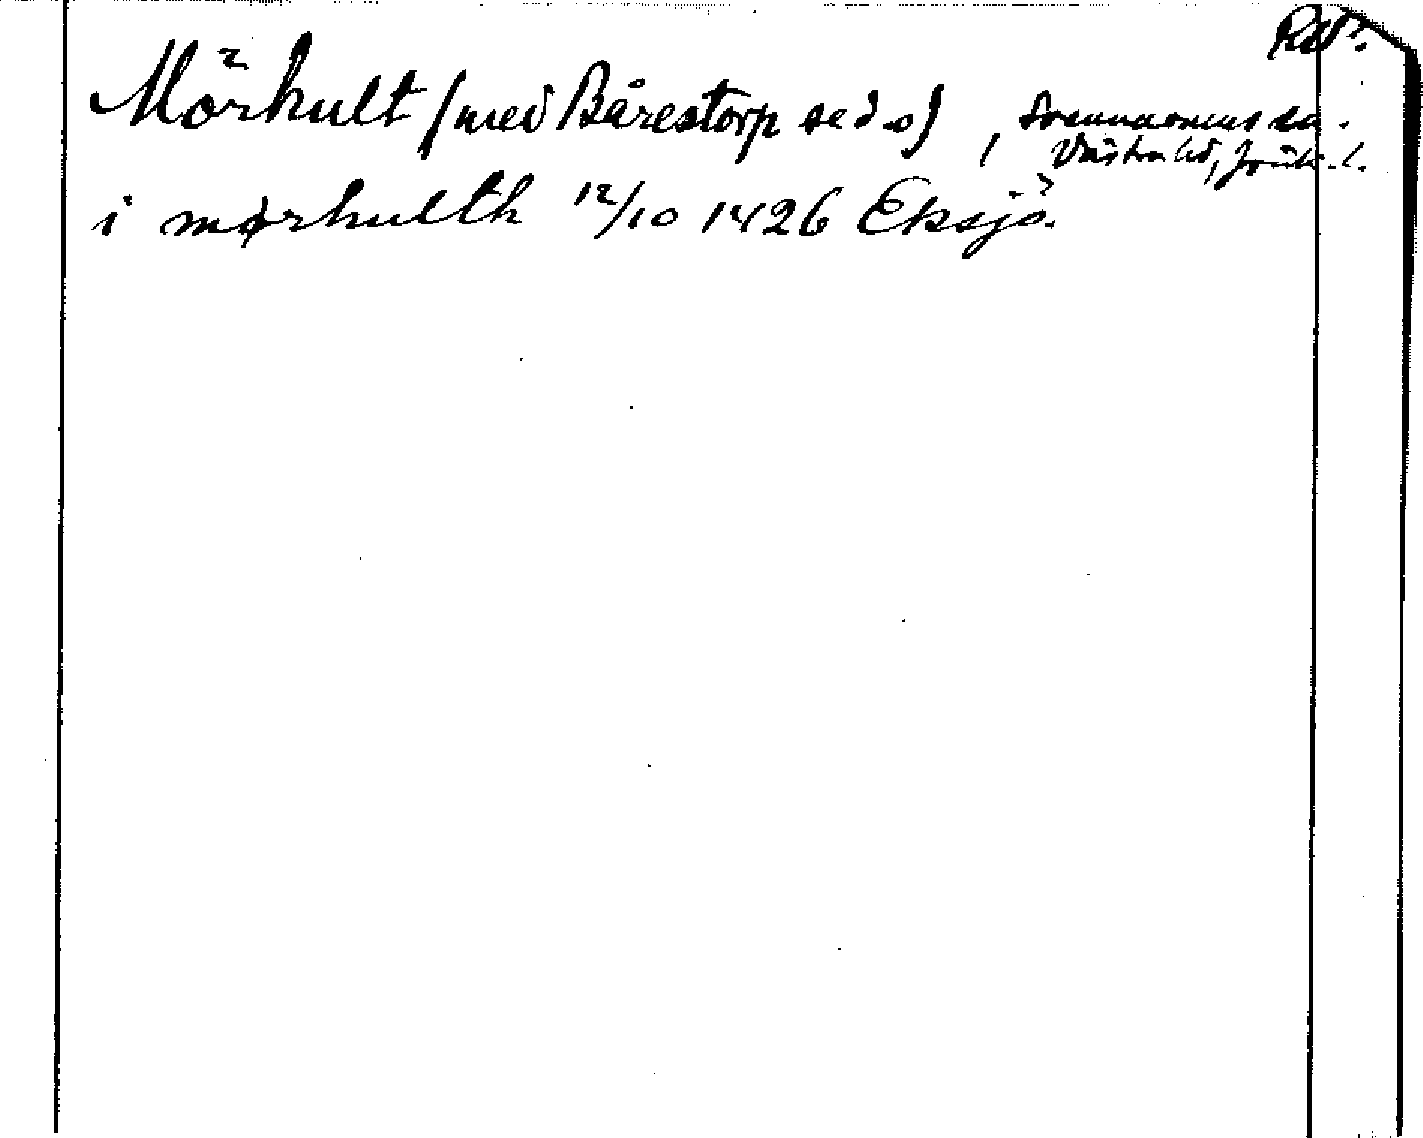 Rdr.
Mörkult (med Bårestorp se d.o) , Svennarums sn.
Västra hd, Jönk. l.
i mørhulth 12/10 1426 Eksjö.